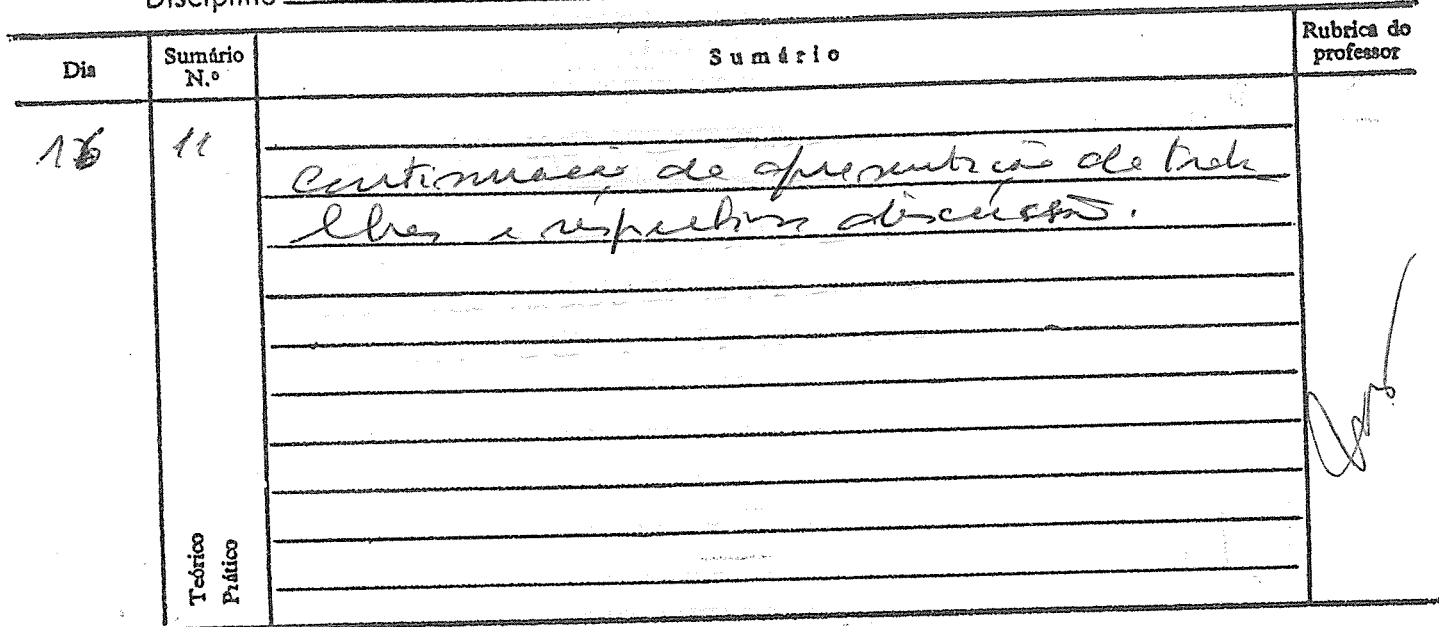 Disciplina
Dia Sumário N.º Sumário Rubrica do professor
16 11
Continuação de apresentação de traba
lhos e respectiva discussão.
Teórico
Prático